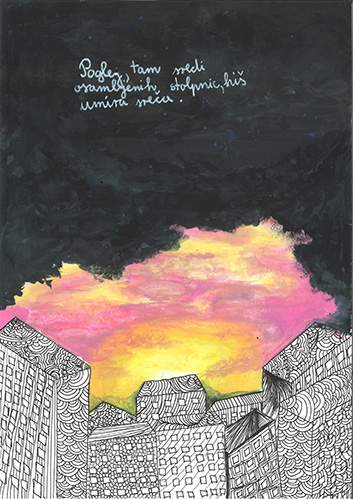 Poglej, tam sredi
osamljenih, stolpnic, hiš
umira sreča.